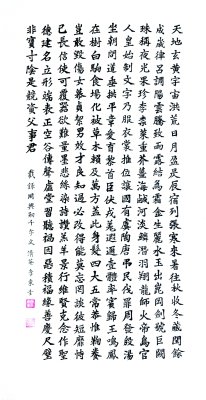 天地玄黃宇宙洪荒日月盈昃辰宿列張寒來暑往秋收冬藏閏餘
成歲律呂調陽雲騰致雨露結為霜金生麗水玉出崑岡劍號巨闕
珠稱夜光果珍李柰菜重芥薑海鹹河淡鱗潛羽翔龍師火帝鳥官
人皇始制文字乃服衣裳推位讓國有虞陶唐弔民伐罪周發殷湯
坐朝問道垂拱平章愛育黎首臣伏戎羌遐邇壹體率賓歸王鳴鳳
在樹白駒食場化被草木賴及萬方蓋此身髮四大五常恭惟鞠養
豈敢毀傷女慕貞絜男效才良知過必改得能莫忘罔談彼短靡恃
己長信使可覆器欲難量墨悲絲染詩讚羔羊景行維賢克念作聖
德建名立形端表正空谷傳聲虛堂習聽禍因惡積福緣善慶尺璧
非寶寸陰是競資父事君
錄周興嗣千字文